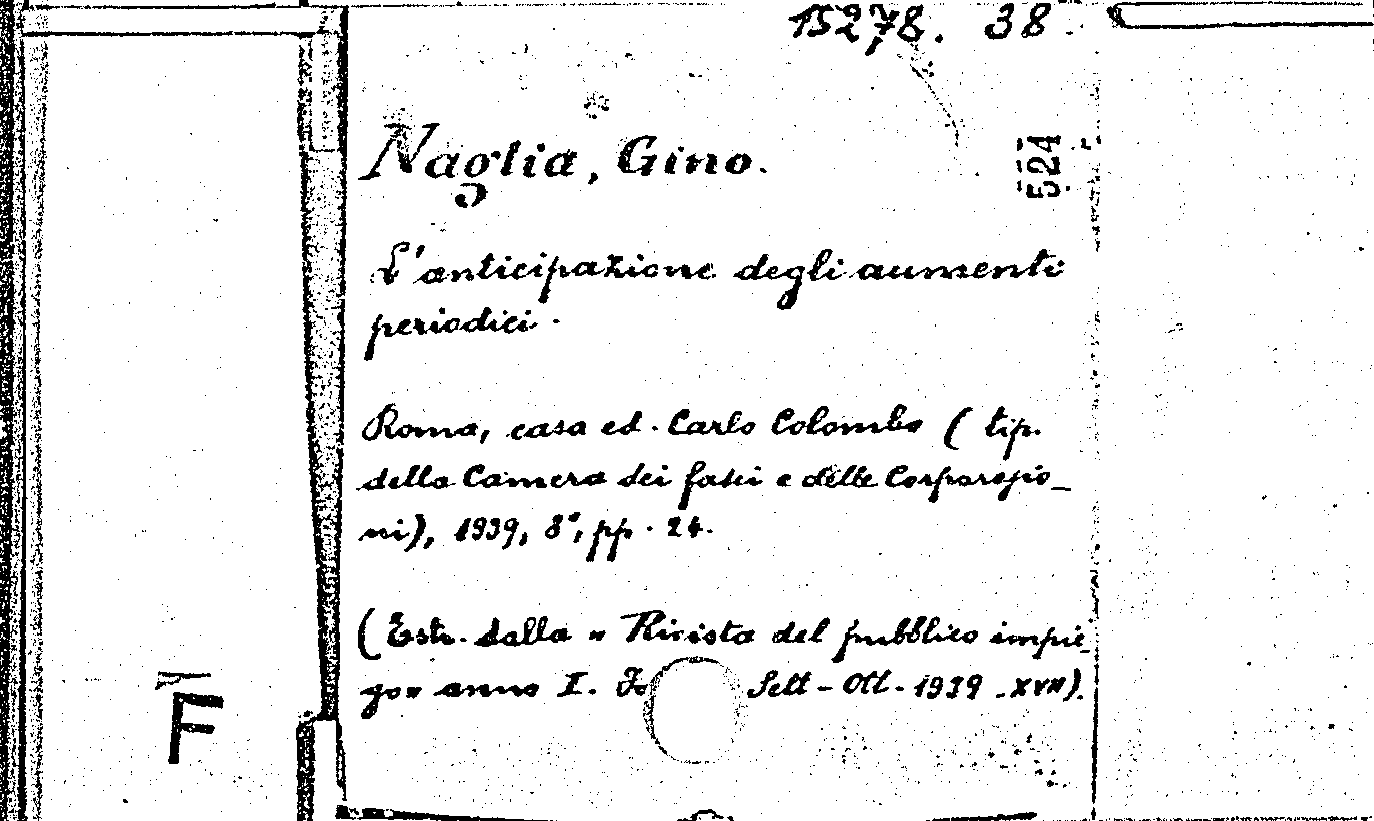 15278. 38
524
Naglia, Gino.
L'anticipazione degli aumenti
periodici.
Roma, casa ed. Carlo Colombo (tip.
della Camera dei fasci e delle Corporazio_
ni), 1939, 8°, pp. 24.
(Estr. dalla "Rivista del pubblico impie_
go" anno I. Sett-Ott. 1939-XVII).
F